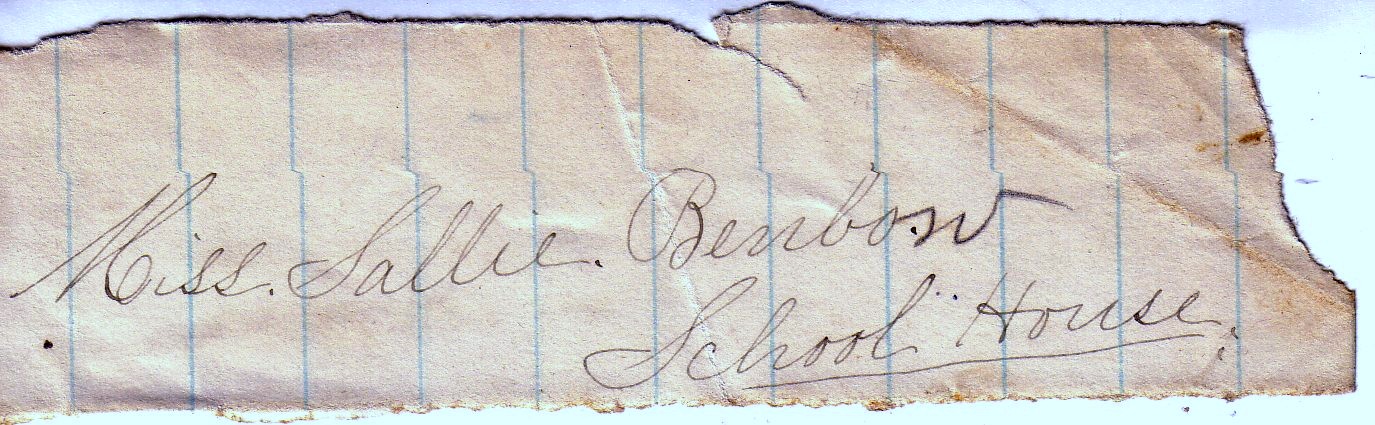 Miss. Sallie. Benbow
School House.